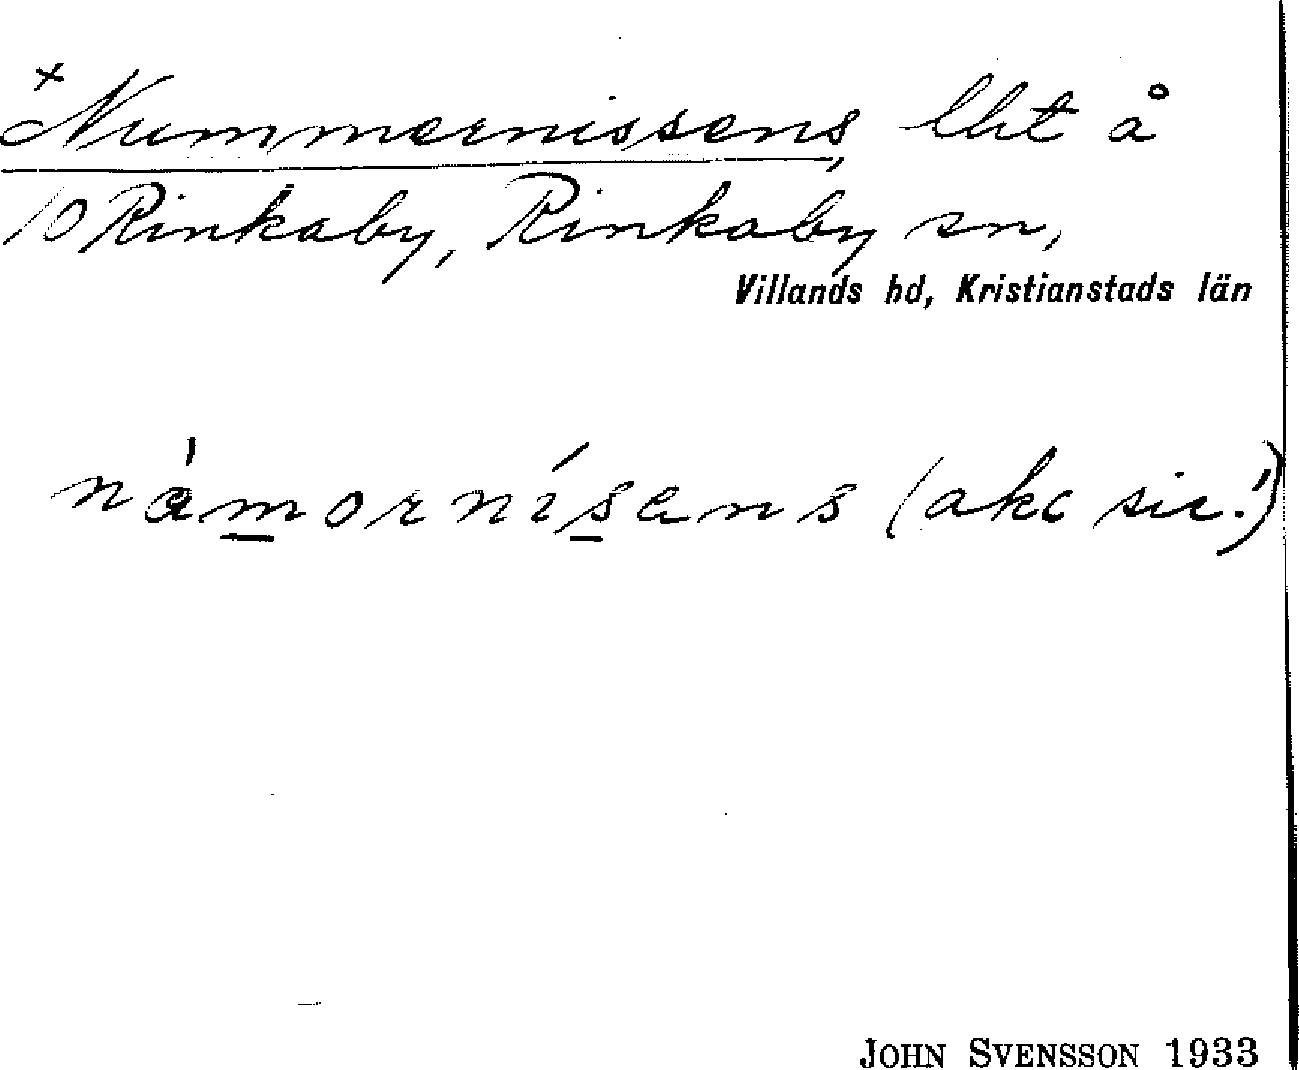 × Nummernissens, lht å
10 Rinkaby, Rinkaby sn,
Villands hd, Kristianstads län
nàmornísens (akc sic!)
JOHN SVENSSON 1933